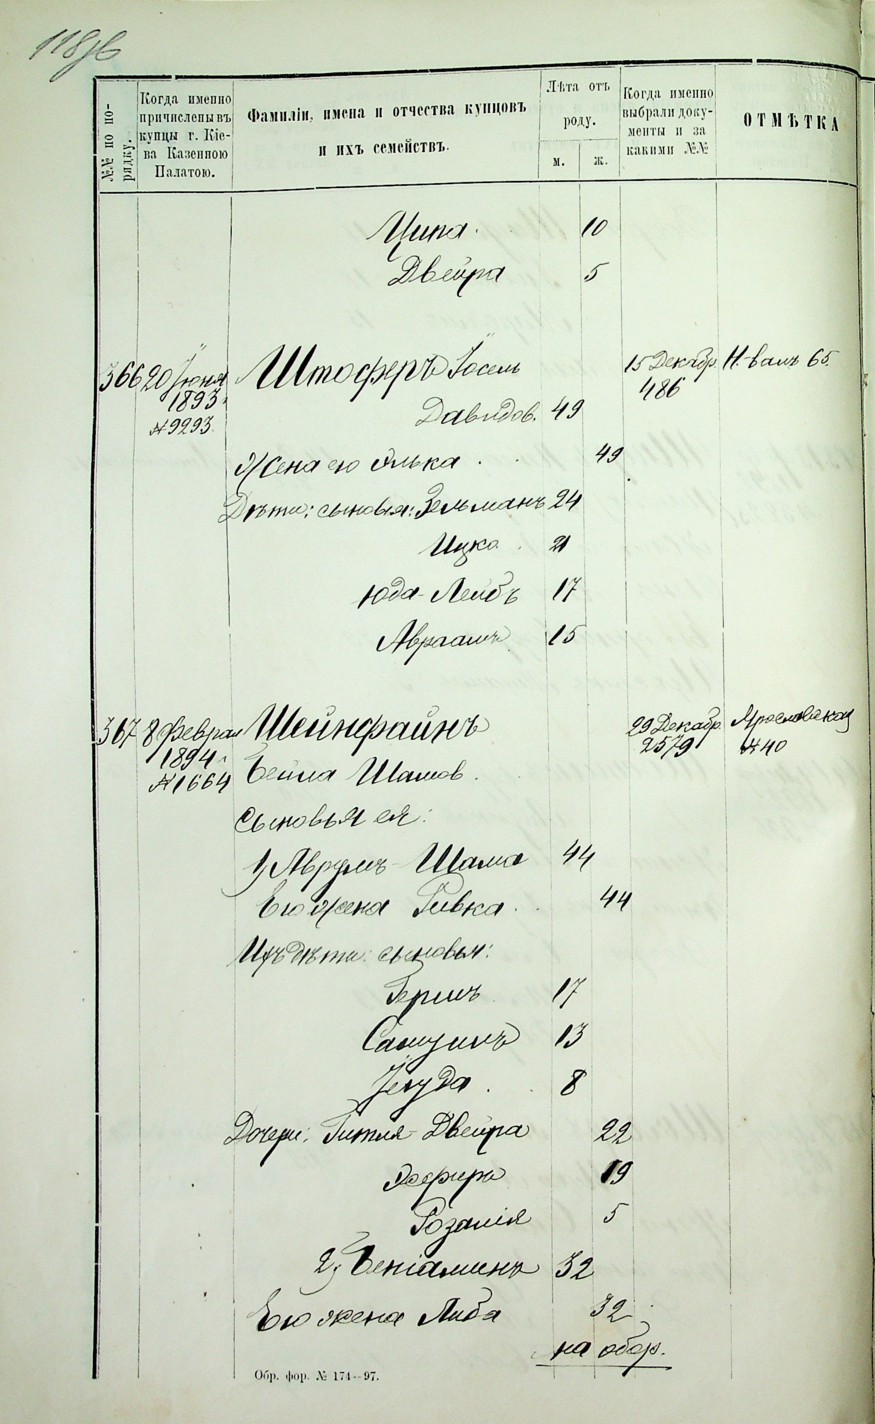 118 об
№№ по порядку.
Когда именно причислены въ купцы г. Кіева Казенною Палатою.
Фамиліи, имена и отчества купцовъ и ихъ семействъ.
Лѣта отъ роду.
м. ж.
Когда именно выбрали документы и за какими №№
ОТМѢТКА
Ципа 10
Двейра 5
366 20 Іюня Штоферъ Іосель 15 Декабр. Н.-валъ 65.
1893 486
№ 9293 Давидов. 49
Жена его Элька 49
Дѣти: сыновья: Зельманъ 24
Ицко 21
Юда-Лейбъ 17
Авраамъ 15
367 8 Феврал Шейнфайнъ 29 Декабр. Ярославская
1894 2579 № 40
№ 1664 Бейла Шамов.
Сыновья ея:
1) Аврумъ-Шама 44
Его жена Ривка 44
Ихъ дѣти: сыновья:
Гершъ 17
Самуилъ 13
Іегуда 8
Дочери: Гитля-Двейра 22
Эсфирь 19
Розалія 5
2) Веніаминъ 32
Его жена Либа 32
на обор.
Обр. фор. № 174—97.